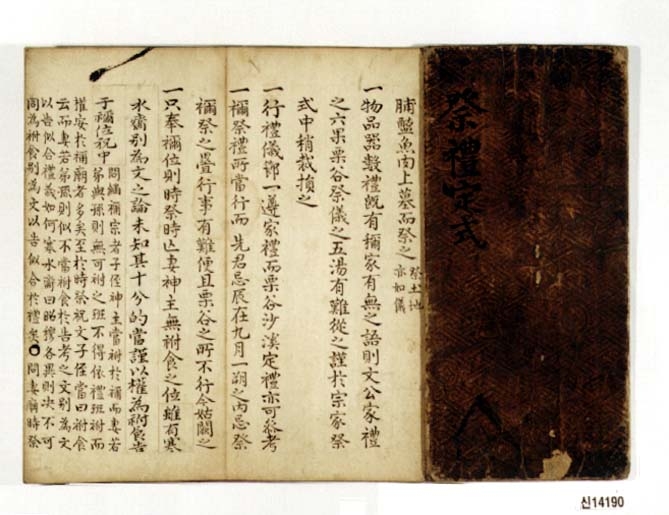 祭禮定式
脯醢魚肉上墓而祭之 祭土地
亦如儀
一物品器數禮旣有稱家有無之語則文公家禮
之六果栗谷祭儀之五湯有難從之謹於宗家祭
式中稍裁損之
一行禮儀節一遵家禮而栗谷沙溪定禮亦可叅考
一禰祭禮所當行而先君忌辰在九月一朔之內忌祭
禰祭之疊行事有難便且栗谷之所不行今姑闕之
一只奉禰位則時祭時亡妻神主無祔食之位雖有寒
水齋別爲文之論未知其十分的當謹以權爲祔食告
于禰位祝中 問繼禰宗者子侄神主當祔於禰而妻若
弟與孫則無可祔之班不得依禮班祔而
權安於禰廟者多矣至於時祭祝文子侄當曰祔食
云而妻若弟孫則似不當祔食於告考之文別爲文
以告似合禮義如何寒水齋曰昭穆各異則決不可
同爲祔食別爲文以告似合於禮矣○問妻廟時祭
신14190